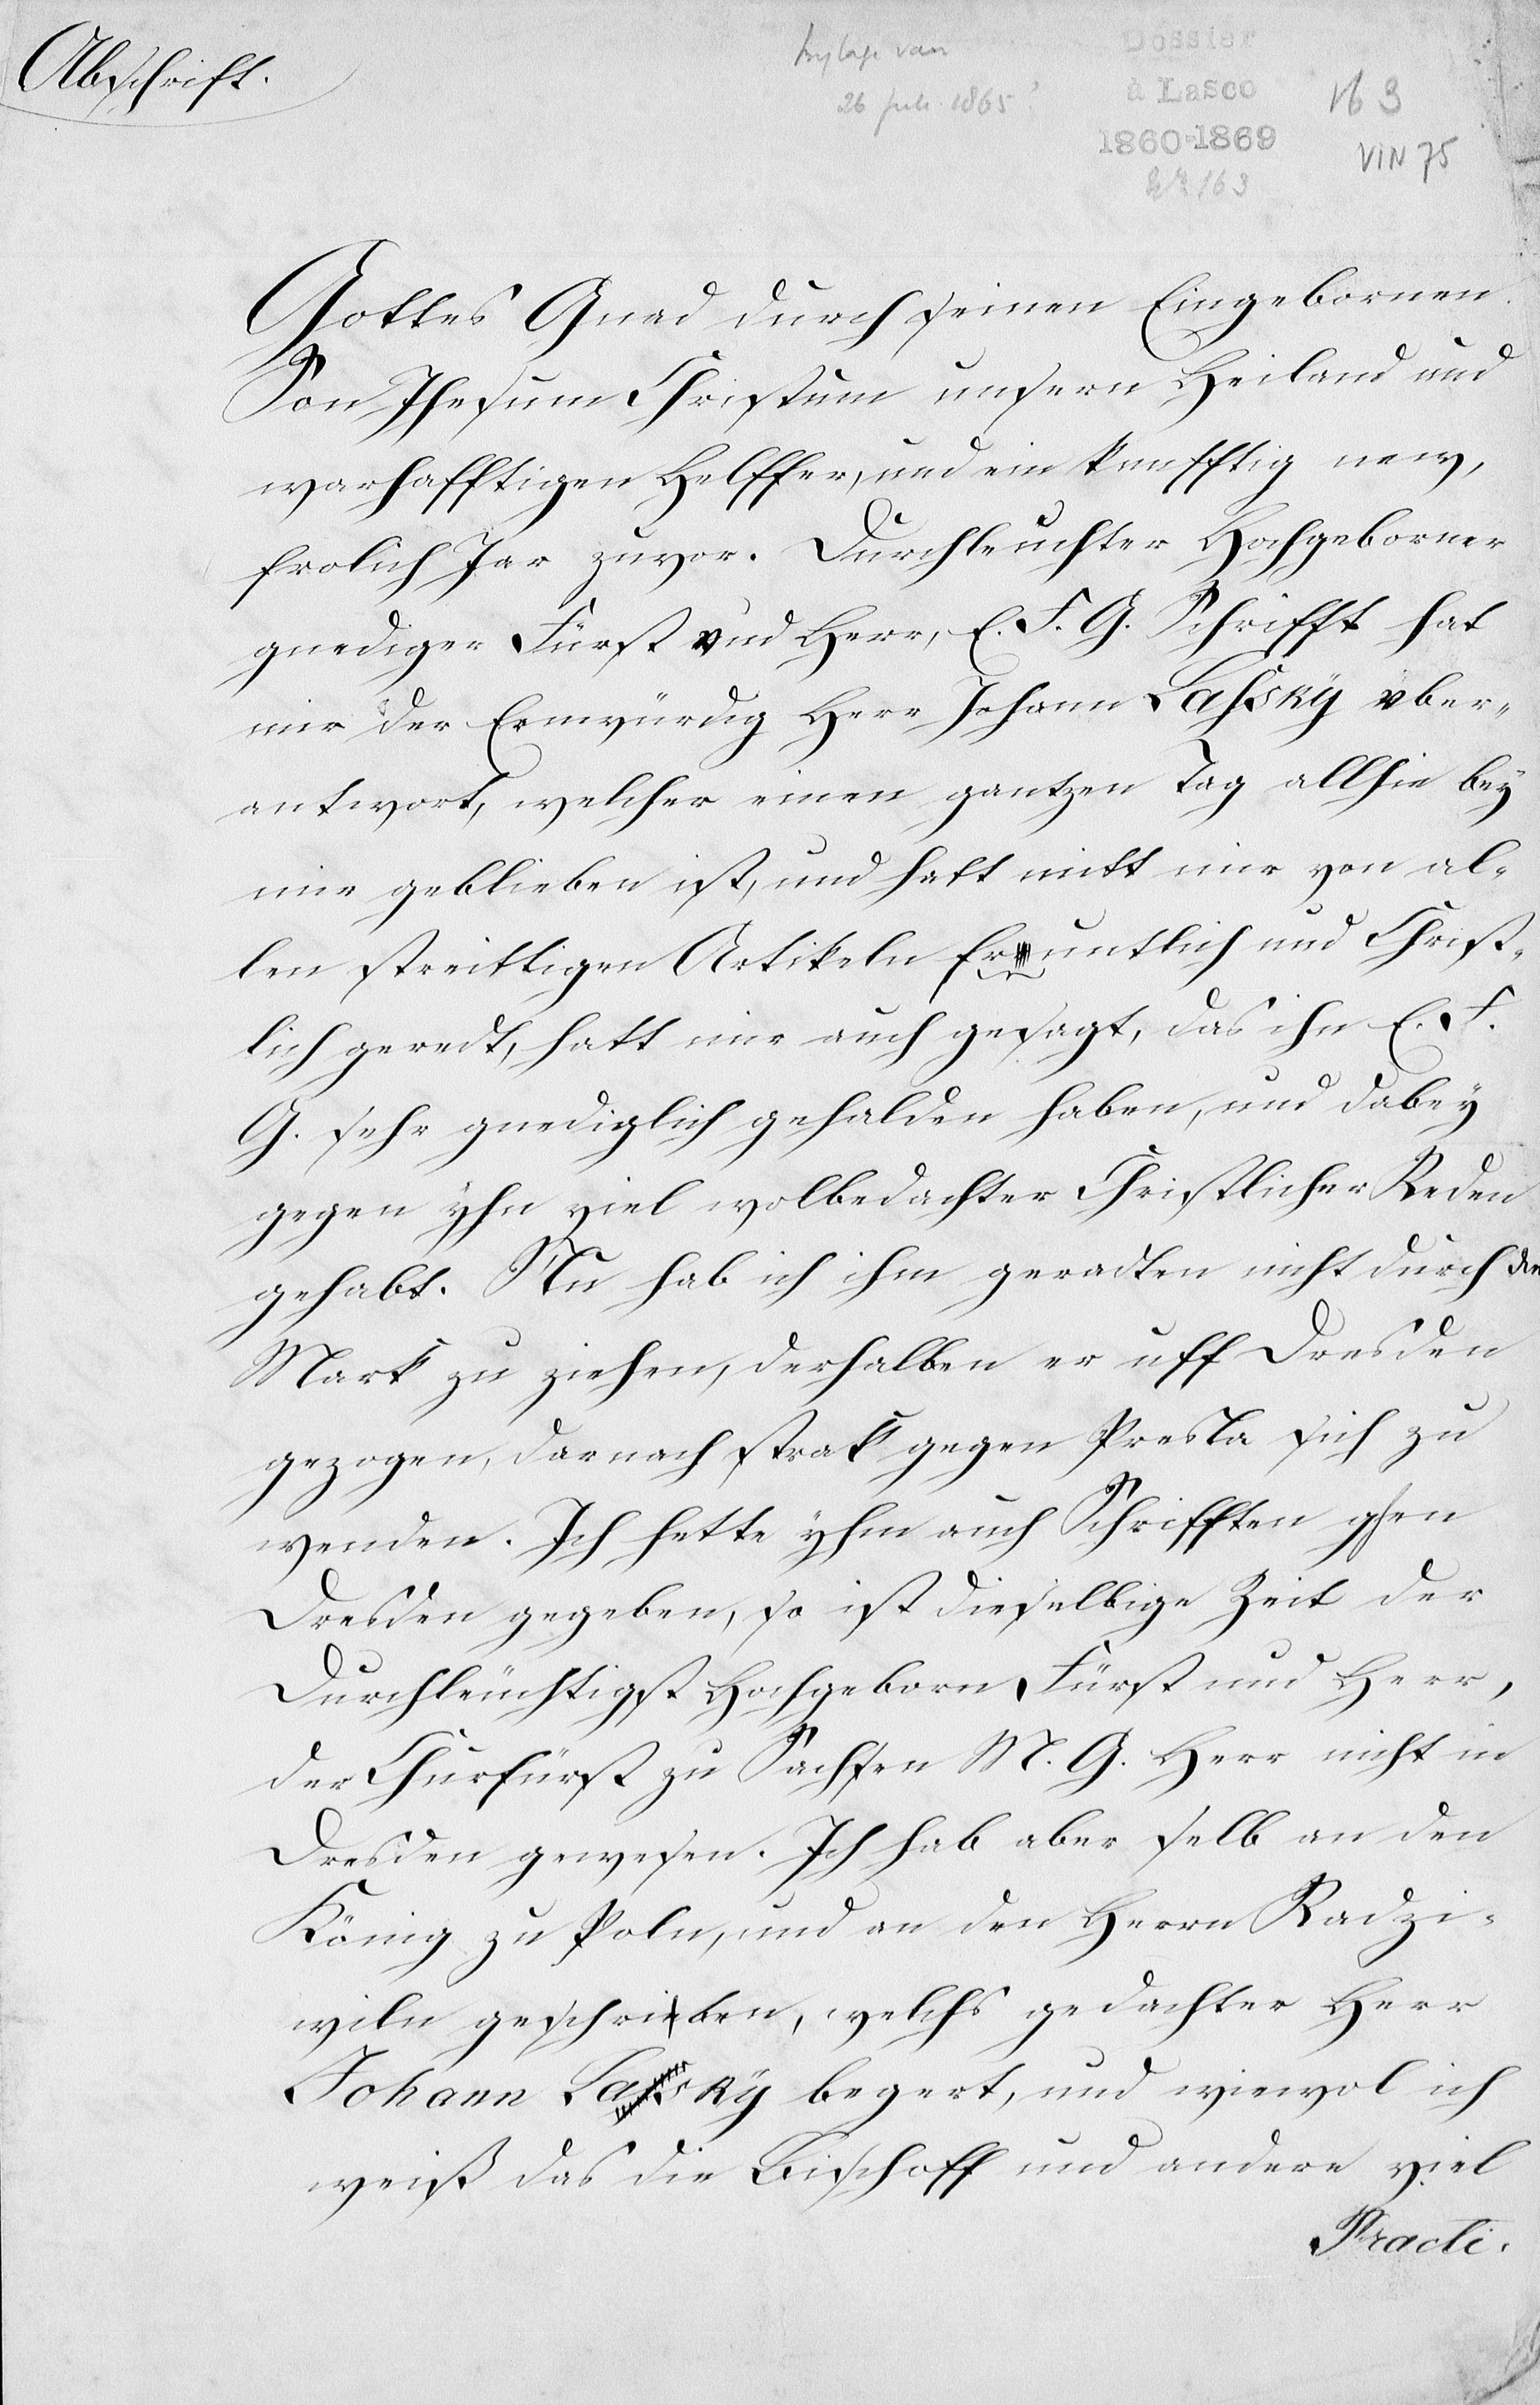 Abschrift.
bylage van
26 feb. 1865?
Dossier
à Lasco
1860-1869
163
VIN 75
Nº 163
Gottes Gnad durch seinen Eingebornen
Son Jhesum Christum unsern Heiland und
warhafftigen Helffer, und ein kunfftig new,
frolich Jar zuvor. Durchleuchter Hochgeborner
gnediger Fürst vnd Herr, E. F. G. Schrifft hat
mir der Ernwürdig Herr Johann Lassky vber-
antwort, welcher einen gantzen Tag allhie bey
mir geblieben ist, und hatt mitt mir von al-
len streittigen Artikeln freuntlich und Christ-
lich geredt, hatt mir auch gesagt, das ihn E. F.
G. sehr gnediglich gehalden haben, und dabey
gegen yhn viel wolbedachter Christlicher Reden
gehabt. Nu hab ich ihm geradten nicht durch die
Mark zu ziehen, derhalben er uff Dresden
gezogen, darnach strak gegen Presla sich zu
wenden. Ich hette yhm auch Schrifften ghen
Dresden gegeben, so ist dieselbige Zeit der
Durchleuchtigst Hochgeborn Fürst und Herr,
der Churfürst zu Sachsen M. G. Herr nicht in
Dresden gewesen. Ich hab aber selb an den
König zu Poln, und an den Herrn Radzi-
wiln geschriben, welchs gedachter Herr
Johann Lasky begert, und wiewol ich
weiß das die Bischoff und andere viel
Practi-